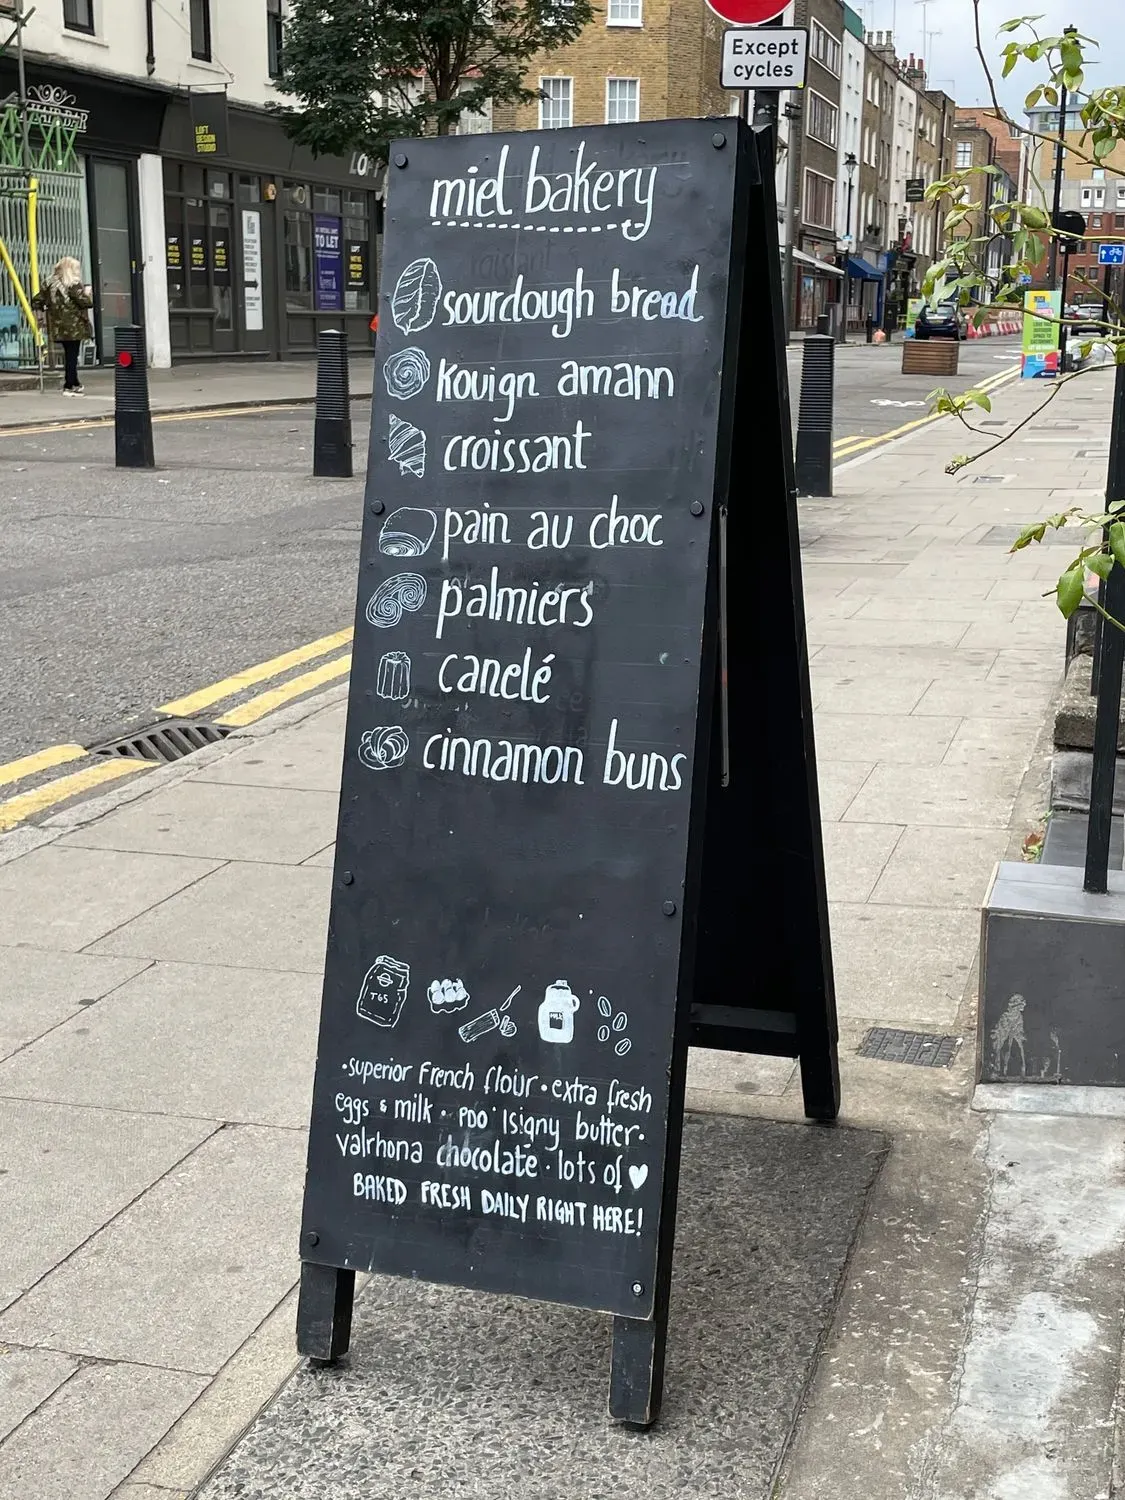 Except
cycles
LOFT
DESIGN
STUDIO
TO LET
miel bakery
sourdough bread
kouign amann
croissant
pain au choc
palmiers
canelé
cinnamon buns
T65
MILK
•superior French flour • extra fresh
eggs & milk • PDO Isigny butter•
valrhona chocolate • lots of ♥
BAKED FRESH DAILY RIGHT HERE!